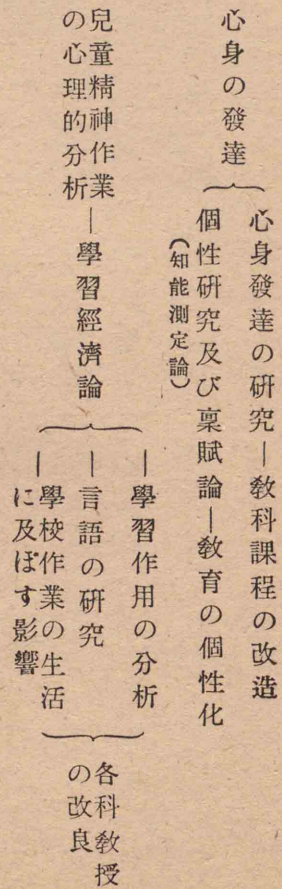 心身の發達
心身發達の研究―敎科課程の改造
個性研究及び稟賦論―敎育の個性化
(知能測定論)
兒童精神作業
の心理的分析―學習經濟論
―學習作用の分析
―言語の硏究
―學校作業の生活
に及ぼす影響
各科敎授
の改良